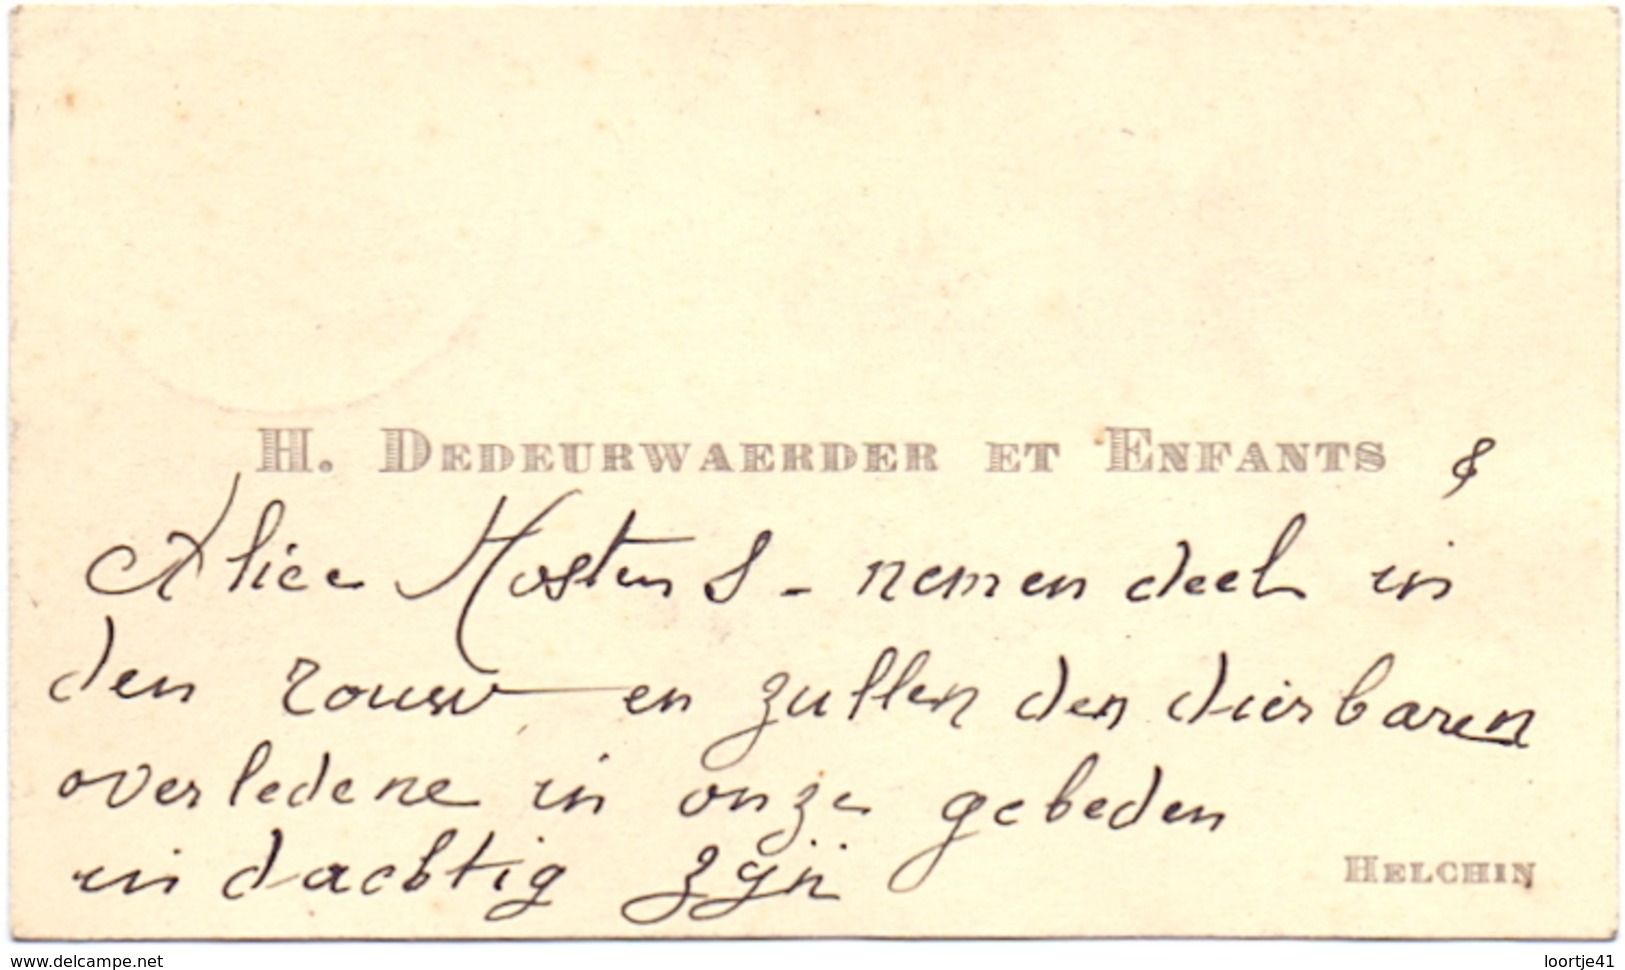 H. Dedeurwaerder et Enfants &
Alice Hostens - nemen deel in
den rouw en zullen den dierbaren
overledene in onze gebeden
indachtig zijn
Helchin
www.delcampe.net
loortje41